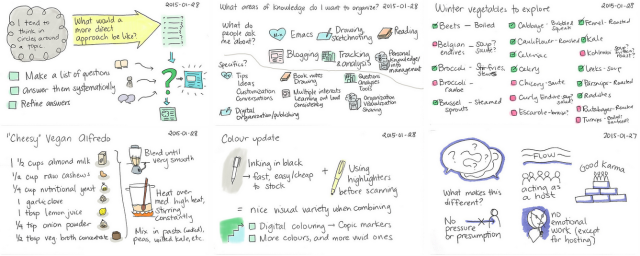 2015-01-28
I tend to
think in
circles around
a topic.
What would a
more direct
approach be like?
Make a list of questions
Answer them systematically
Refine answers
What areas of knowledge do I want to organize?
2015-01-28
What do
people ask
me about?
Emacs
Drawing,
sketchnoting
Reading
Blogging
Tracking
& analysis
Personal
knowledge
management
Specifics?
Tips
Ideas
Customization
Conversations
Digital
Organization/publishing
Book notes
Drawing
Multiple interests
Learning out loud
Consistently
Question
Analyses
Tools
Organization
Visualization
Sharing
Winter vegetables to explore
2015-01-28
Beets - Boiled
Belgian - Soup?
endives
Broccoli - Stir-fries,
Broccoli -
raabe
Brussel - Steamed
sprouts
Cabbage -
Cauliflower - Roasted
Celeriac
Celery
Chicory - Saute
Curly Endive - soup?
Escarole -
Fennel - Roasted
Kale
Kohlrabi
Leeks - Soup
Parsnips - Roasted
Radishes
Rutabaga - Roasted
Turnips -
"Cheesy" Vegan Alfredo
2015-01-28
1 1/2 cups almond milk
1/2 cup raw cashews
1/4 cup nutritional yeast
1 garlic clove
1 tbsp lemon juice
1/4 tsp onion powder
1/2 tbsp veg broth concentrate
Blend until
very smooth
Heat over
med high heat,
stirring
constantly
Mix in pasta (cooked),
peas, wilted kale, etc.
Colour update
2015-01-28
Inking in black
→ fast, easy/cheap
to stock
+
Using
highlighters
before scanning
= nice visual variety when combining
Digital colouring → Copic markers
More colours, and more vivid ones
2015-01-27
FLOW
acting as
a host
Good karma
What makes this
different?
No
pressure
or presumption
no
emotional
work (except
for hosting)